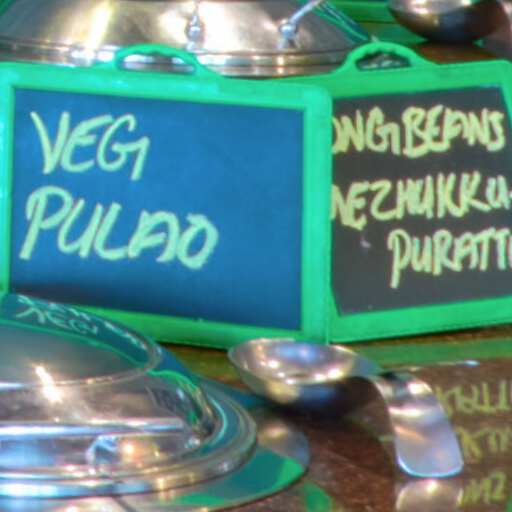 VEG
PULAO
ONG BEANS
MEZHUKKU
PURATTI